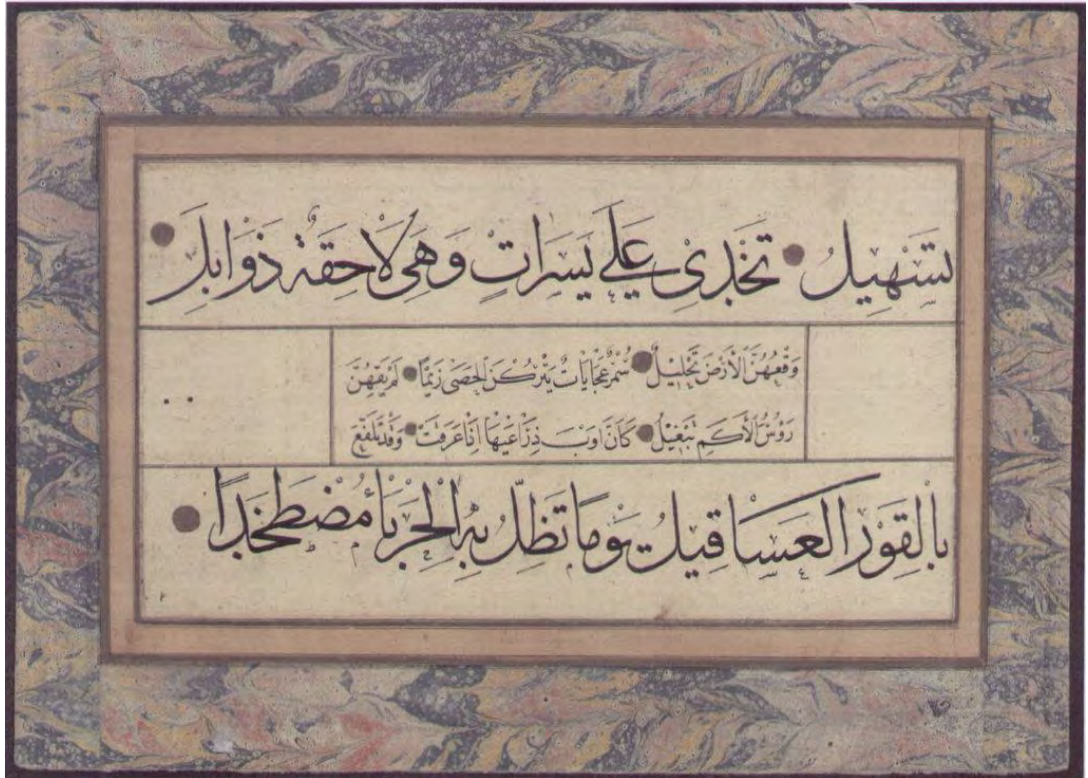 تَسْهِيلُ تَخْذِي عَلَى يَسَرَاتٍ وَهِيَ لَاحِقَةٌ ذَوَابِلَ
وَقْعُهُنَّ الْأَرْضَ تَحْلِيلُ سُمْرُ عُجَايَاتٌ يَتْرُكْنَ الْحَصَى زِيَمًا لَمْ يَقِهِنَّ
رَؤُسُ الْأَكَمِ تَبْغِيلُ كَانَ اوَبَ ذِرَاعَيْهَا اِذَا عَرِقَتْ وَقَدْ تَلَفَّعَ
بِالْقَوْرِ الْعَسَاقِيلُ يَوْمًا تَظَلُّ بِهِ الْحِرْبَاءُ مُصْطَخِدًا